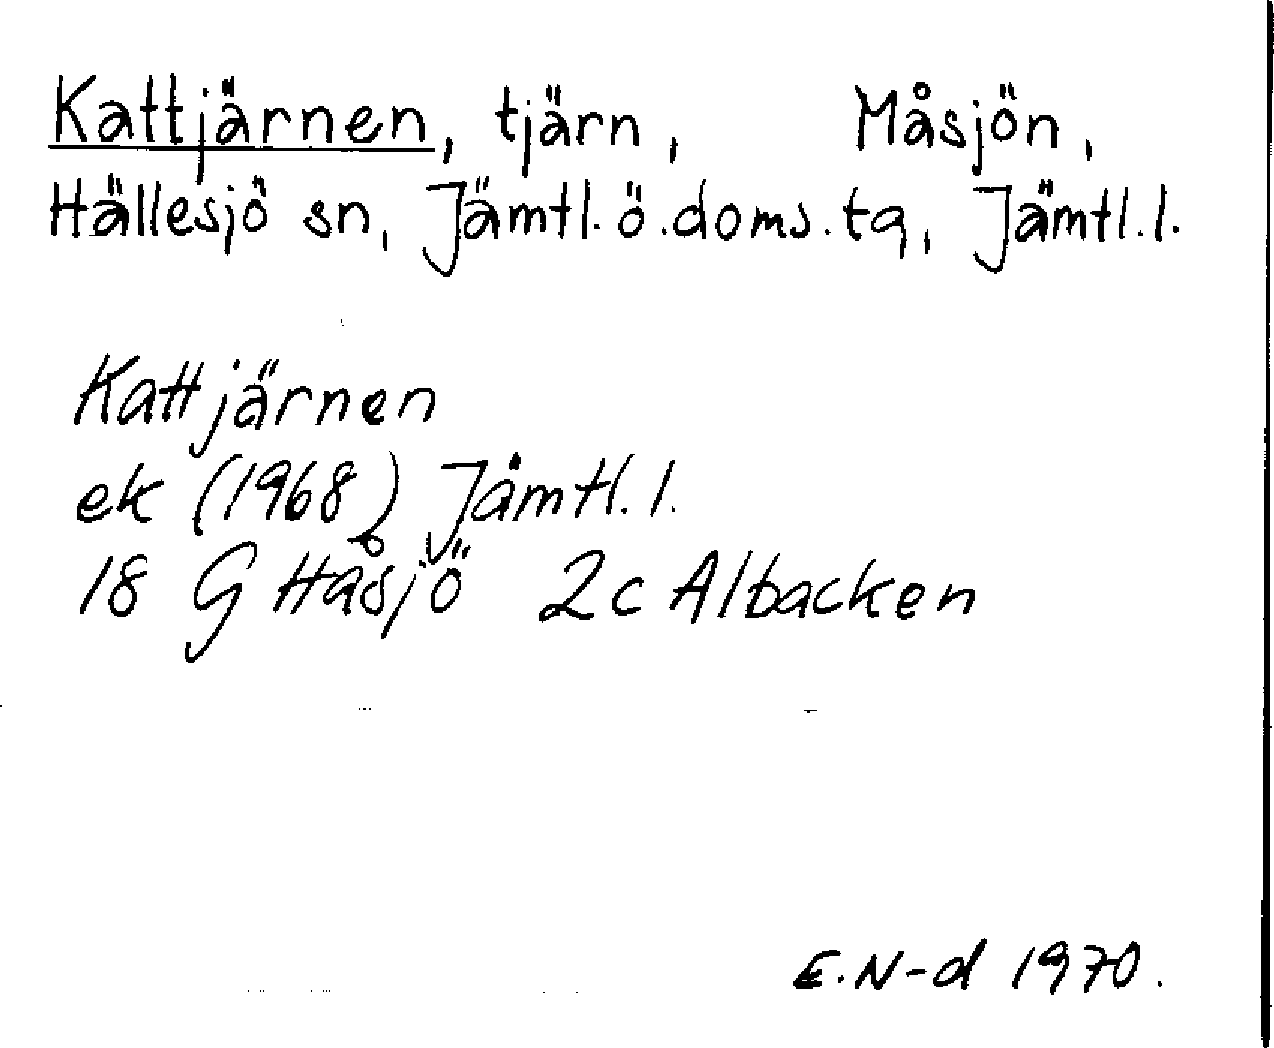 Kattjärnen, tjärn, Måsjön,
Hällesjö sn, Jämtl. ö. doms. tg, Jämtl. l.
Kattjärnen
ek (1968) Jämtl. l.
18 G Håsjö 2c Albacken
E. N-d 1970.